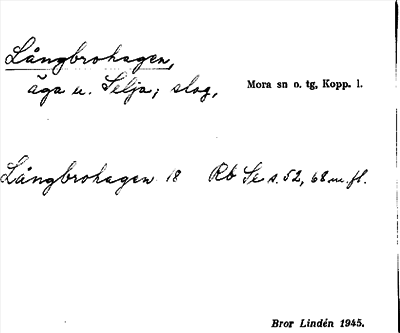 Långbrohagen,
äga u. Selja; slog,
Mora sn o. tg, Kopp. l.
Långbrohagen 18 Rb Se s. 52, 68 m. fl.
Bror Lindén 1945.